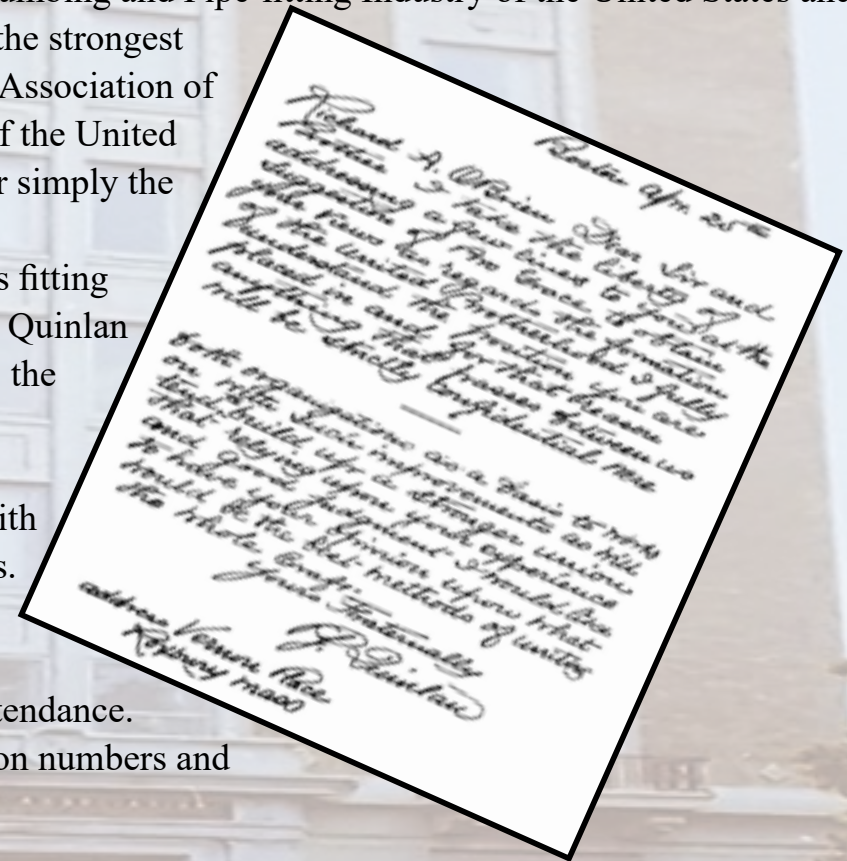 and Pipe fitting Industry of the United States and
the strongest
Association of
f the United
r simply the
s fitting
Quinlan
the
ith
s.
tendance.
on numbers and
Apr. 25th
Richard A. O'Brien Dear Sir and
Brother I take the liberty of
addressing a few lines to you at the
suggestion of to obtain
views as regards the formation
of the united I fully
understand the position you are
placed in and for that reason
anything that passes between us
will be strictly confidential
both organizations as a basis to work
on with such improvements as will
tend build up a stronger union
that relying upon your experience
and good judgment I should like
to have your opinion upon what
would be the best methods of uniting
the whole
Yours Fraternally
P. Quinlan
address Vernon Place
Roxbury Mass